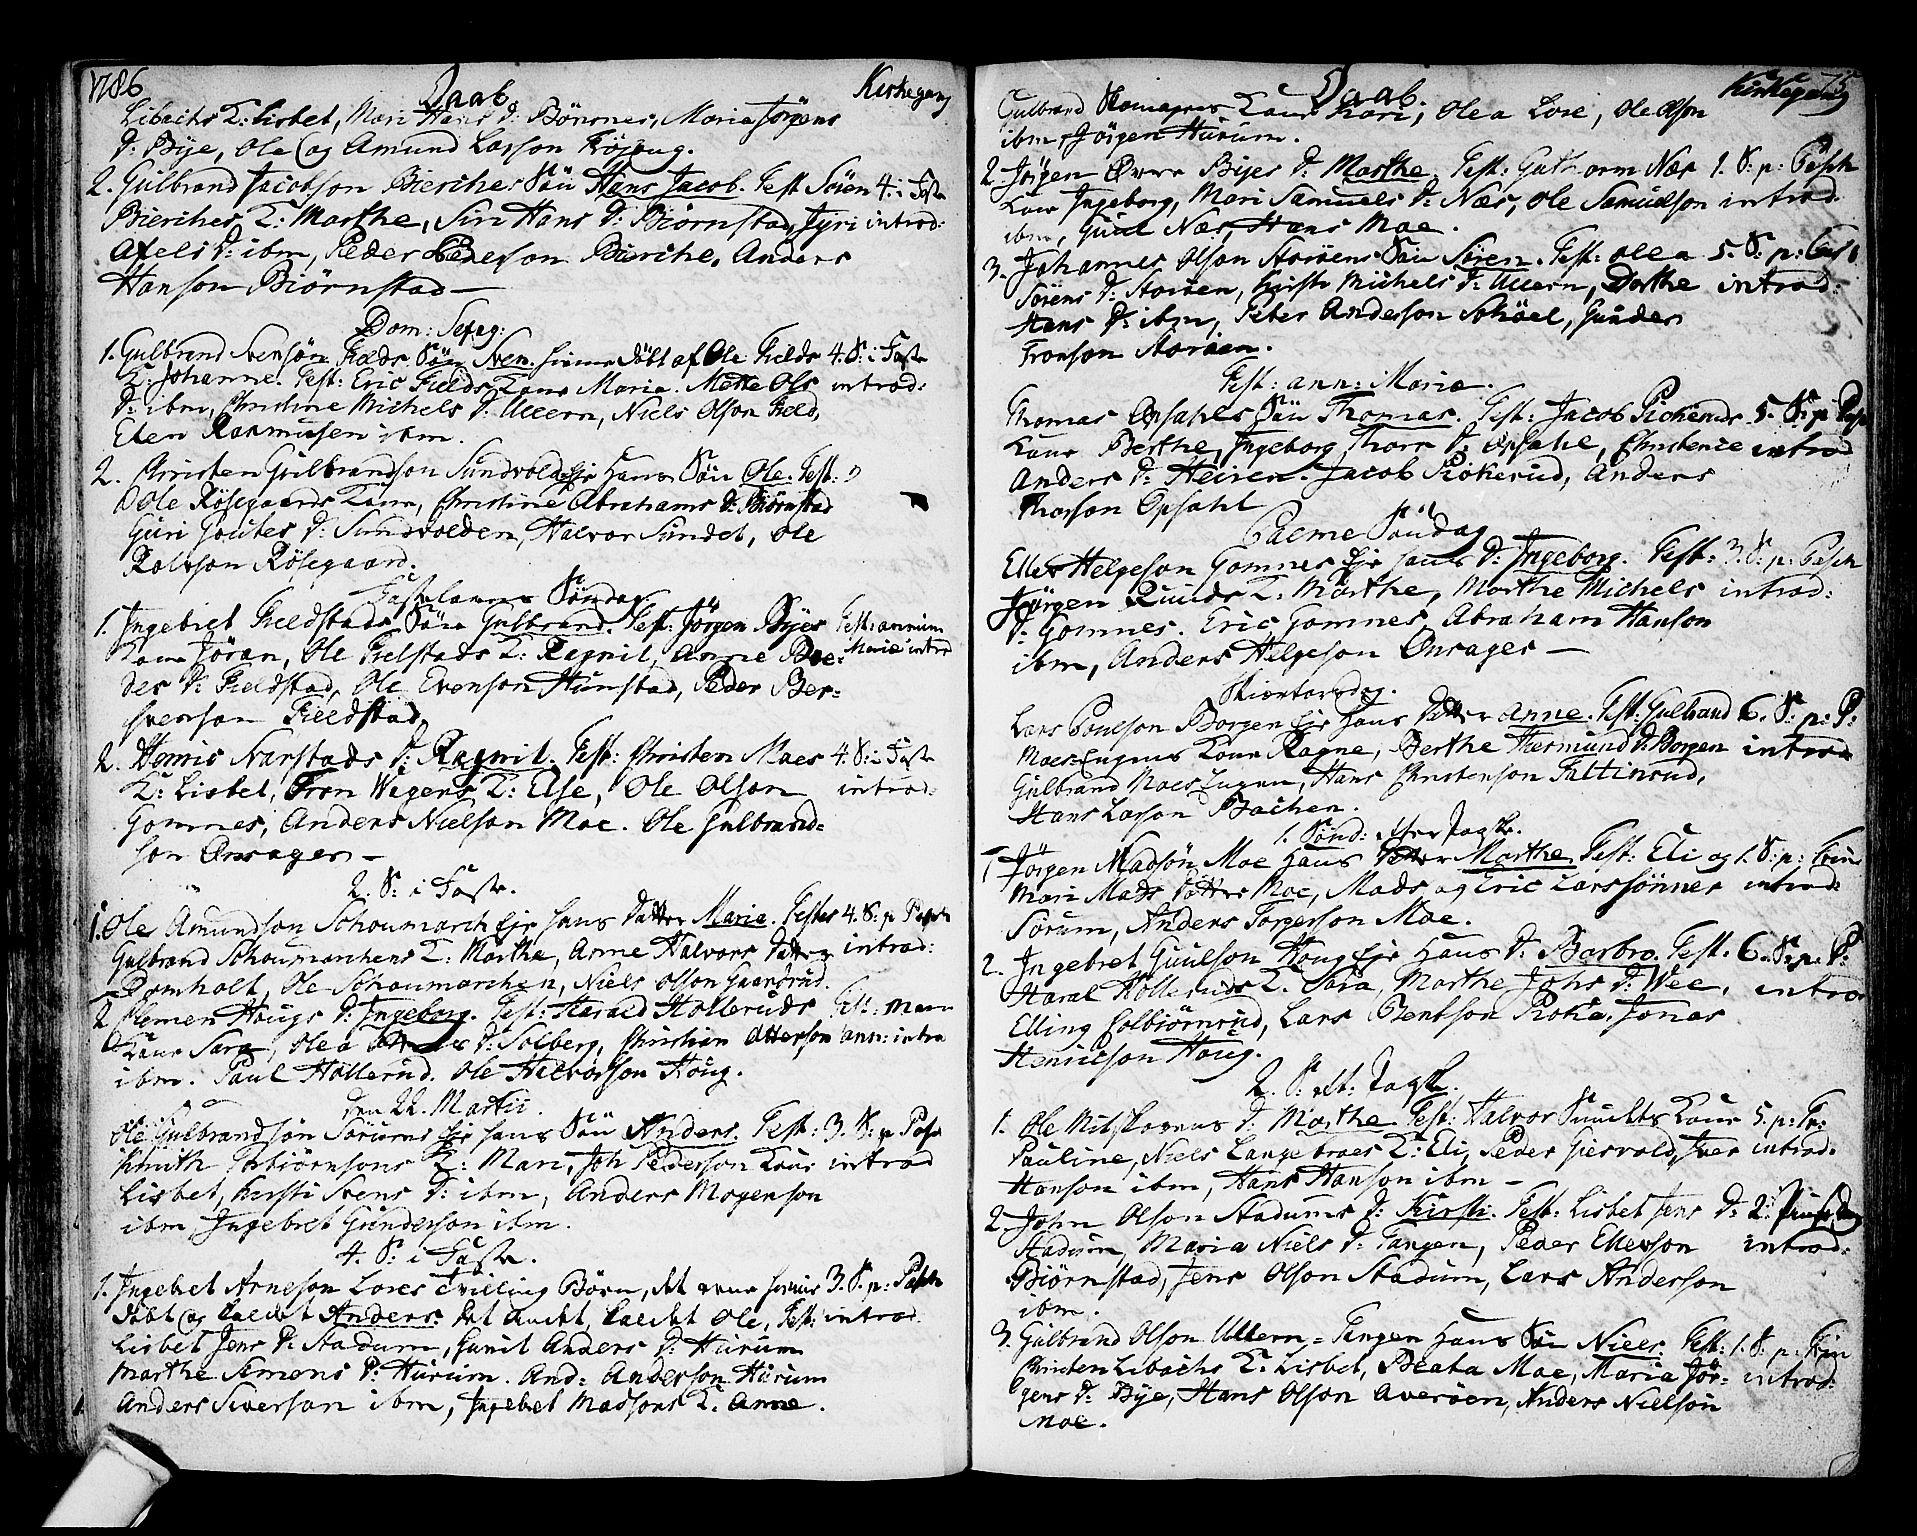 1786 Daab Kirkegang
Libachs K: Lisbet, Mari Hans D: Bönsnes, Maria Jörgens
D: Bÿe, Ole og Amund Larson
2. Gulbrand Jacobson Bierches Sön Hans Jacob. Test Sören 4. i Faste
Bierches K: Marthe, Siri Hans D: Biörnstad, Jyri introd:
Axels D: ibm, Peder Pederson Bierche, Anders
Hanson Biörnstad —
Dom: Sexag:
1. Gulbrand Svensön Fields Sön Sven. hiemme döbt af Ole Fields 4. S: i Faste
K: Johanne. Test: Eric Fields Kone Maria. Mette Ols introd:
D: ibm, Christine Michels D: Ullern, Niels Olson Field,
Eten Rasmusen ibm.
2. Christen Gulbrandson Sundvold Eje Hans Sön Ole. Test:
Ole Rösegaards Kone, Christine Abrahams D: Biörnstad
Guri Goutes D: Sundvolden, Halvor Sundet, Ole
Rolvson Rösegaard.
Fastelavns Söndag
1. Ingebret Fieldstads Sön Gulbrand. Test: Jörgen Byes Fest: annun
Kone Jöran, Ole Fielstads K: Ragnil, Anne Pe- Mariæ introd
ders D: Fieldstad, Ole Evenson Hunstad, Peder
Fieldstad.
2. Henric Narstads D: Ragnil. Test: Christen Moes 4. S: i Faste
K: Lisbet, Tron Wegens K: Else, Ole Olson introd:
Gomnes, Anders Nielson Moe. Ole Gulbrand=
son Onsager —
2. S: i Faste.
1. Ole Amundson Schoumarch Eje hans Datter Maria. Testes 4. S: p Pasch
Gulbrand Schoumarchens K: Marthe, Anne Halvors Datter introd:
Domholt, Ole Schoumarchen, Niels Olson Gaardrud.
2 Clemen Hougs D: Ingeborg. Test: Harald Hollerud Fest: Mariæ
Kone Sara, Olea D: Solberg, Christian Otterson ann: introd
ibm. Paul Hollerud. Ole Halvorson Houg.
den 22. Martii.
Ole Gulbrandsön Sörums Eje hans Sön Anders. Test: 3. S: p Pasc
Knuth Torbiörnsons K: Mari, Joh Pederson Kone introd
Lisbet, Kirsti Svens D: ibm, Anders Mogenson
ibm, Ingebret Gunderson ibm.
4. S: i Faste.
1. Ingebet Arneson Lores Tvilling Börn, det eene hiemme 3. S: p: Pasch
döbt og kaldet Anders. det andet, kaldet Ole, Test: introd.
Lisbet Jens D: Stadum, Gunil Anders D: Hurum
Marthe Simens D: Hurum. And: Anderson Hurum
Anders Siverson ibm, Ingebet Madsons K: Anne.
Daab. Kirkegang 75
Gulbrand Kone Kari, Olea Lore, Ole Olson
ibm, Jörgen Hurum.
2. Jörgen Övre Byes D: Marthe. Test: Guthorm Næs 1. S: p: Pasch
Kone Ingeborg, Mari Samuels D: Næs, Ole Samuelson introd.
ibm, Guul Næs, Hans Moe.
3. Johannes Olson Storöens Sön Sören. Test: Olea 5. S: p: Pasc
Sörens D: Storöen, Kirsti Michels D: Ullern, Dorthe introd:
Hans D: ibm, Peter Anderson Schöel, Gunder
Tronson Storöen.
Fest: ann: Mariæ.
Thomas Opsahls Sön Thomas. Test: Jacob Pickeruds 5. S: p: Pas
Kone Berthe, Ingeborg Thor D: Opsahl, Christence introd
Anders D: Heiren. Jacob Pickerud, Anders
Thorson Opsahl
Palme Söndag
Ellef Helgeson Gomnes Eje hans D: Ingeborg. Test: 3. S: p: Pasch
Jörgen Ruuds K: Marthe, Marthe Michels introd:
D: Gomnes. Eric Gomnes, Abraham Hanson
ibm, Anders Helgeson Onsager —
Skiertorsdag.
Lars Poulson Borgen Eje hans Datter Anne. Test: Gulbrand 6. S: p: P:
Moes Engens Kone Ragne, Berthe Thormund D: Borgen introd
Gulbrand Moes Engen, Hans Christenson Fattinrud,
Hans Larson Bachen.
1. Sönd: efter Paaske.
1 Jörgen Madsön Moe hans Datter Marthe. Test: Eli og 1. S: p: Trin
Mari Mads Dötter Moe, Mads og Eric Larssönner introd:
Sörum, Anders Torgerson Moe.
2. Ingebret Guulson Houg Eje hans D: Barbro. Test: 6. S: p: P:
Haral Holleruds K: Sara, Marthe Johs D: Wee, introd
Elling Colbiörnrud, Lars Bentson Roka, Jonas
Henricson Houg.
2. S: eft: Paaske.
1. Ole Nitskogens D: Marthe Test: Halvor Kone 5. p: Tr:
Pauline, Niels Langebraes K: Eli, Peder Giesvold, Iver introd:
Hanson ibm, Hans Hanson ibm —
2. John Olson Stadums D: Kirsti. Test: Lisbet Jens D: 2. Pintsedag
Stadum, Maria Niels D: Tangen, Peder Ellevson introd:
Biörnstad, Jens Olson Stadum, Lars Anderson
ibm.
3. Gulbrand Olson Ullern=Tangen hans Sön Niels. Test: 1. S: p: Trin
Christen Libachs K: Lisbet, Beata Moe, Maria Jör= introd:
gens D: Bÿe, Hans Olson Averöen, Anders Nielson
Moe.